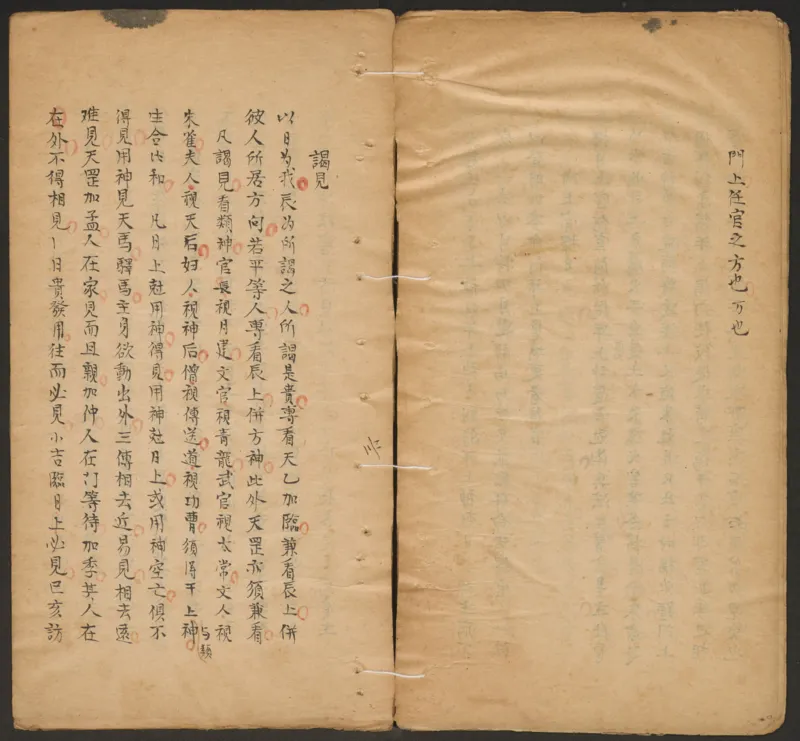 門上任官之方也万也
謁見
以日為我辰為所謁之人所謁是貴專看天乙加臨兼看辰上併
彼人所居方向若平等人專看辰上併方神此外天罡亦須兼看
凡謁見看類神官長視月建文官視青龍武官視太常文人視
朱雀夫人視天后妇人視神后僧視傳送道視功曹須得干上神
与類
生合比和 凡日上尅用神得見用神尅日上或用神空亡俱不
得見用神見天馬驛馬主身欲動出外三傳相去近易見相去遠
难見天罡加孟人在家見而且親加仲人在门等待加季其人在
在外不得相見 日貴發用往而必見小吉臨日上必見巳亥訪